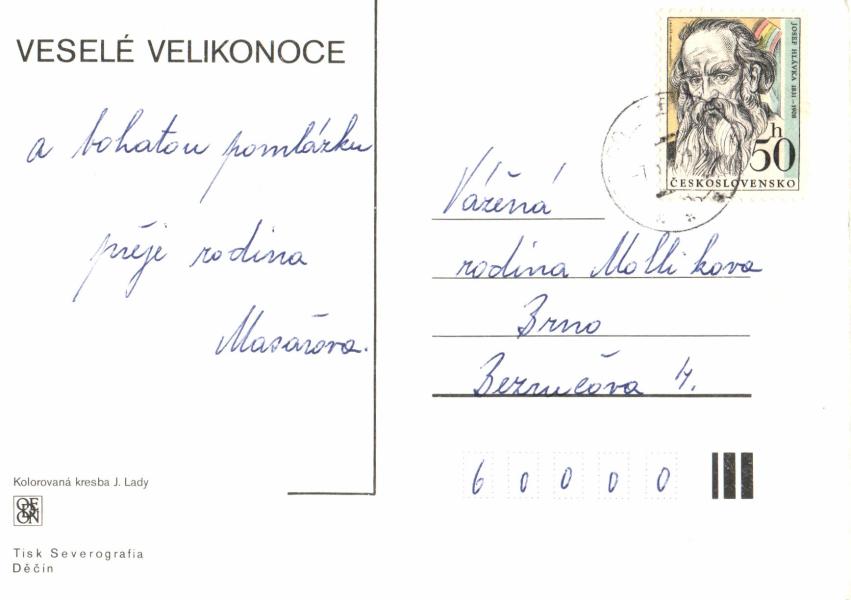 VESELÉ VELIKONOCE
a bohatou pomlázku
přeje rodina
Masařova.
Kolorovaná kresba J. Lady
ODEON
Tisk Severografia
Děčín
JOSEF HLÁVKA 1831–1908
50 h
ČESKOSLOVENSKO
Vážená
rodina Mollikova
Brno
Bezručova 4.
6 0 0 0 0